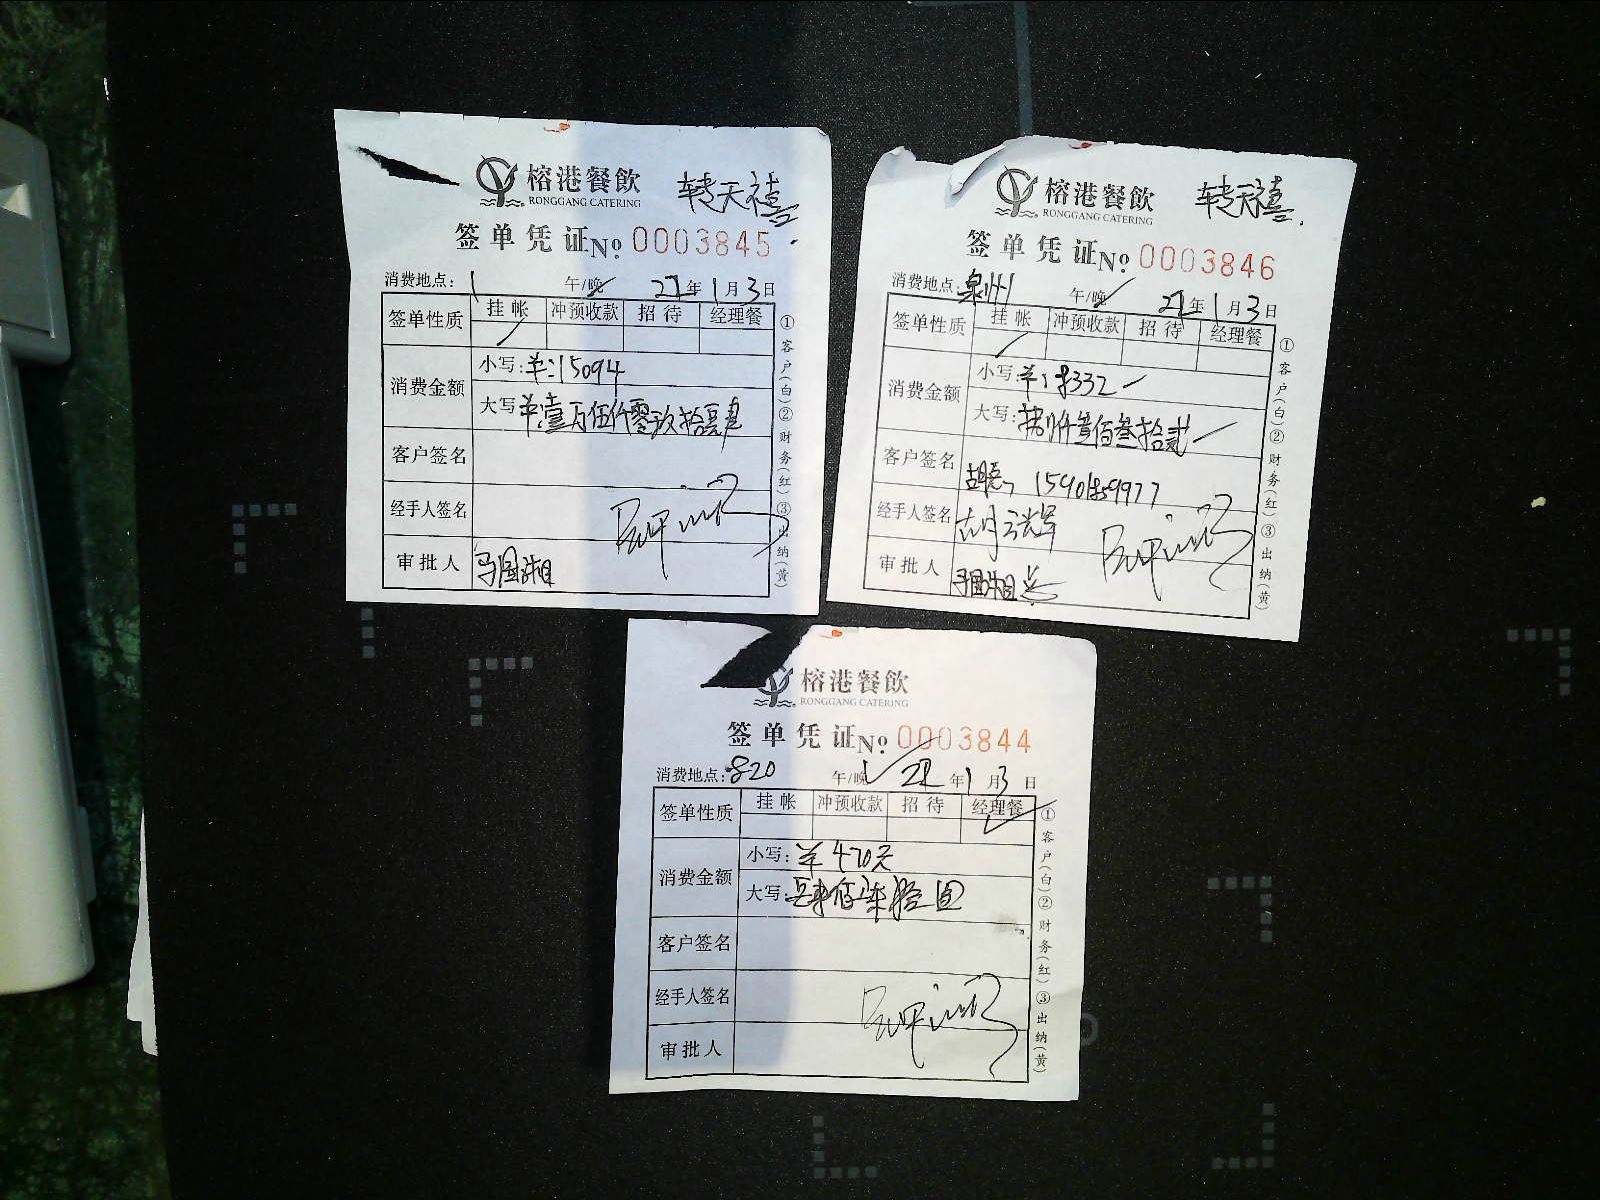 榕港餐飲
RONGGANG CATERING
转天禧
签单凭证 No. 0003845
消费地点: 1 午/晚 21年1月3日
签单性质 挂帐 冲预收款 招待 经理餐
消费金额
小写: ¥:15094
大写: ¥:壹万伍仟零玖拾肆
客户签名
经手人签名
审批人
①客户(白)②财务(红)③出纳(黄)
榕港餐飲
RONGGANG CATERING
转天禧
签单凭证 No. 0003846
消费地点: 泉州 午/晚 21年1月3日
签单性质 挂帐 冲预收款 招待 经理餐
消费金额
小写: ¥:8332
大写: 捌仟叁佰叁拾贰
客户签名
经手人签名
审批人
①客户(白)②财务(红)③出纳(黄)
榕港餐飲
RONGGANG CATERING
签单凭证 No. 0003844
消费地点: 820 午/晚 21年1月3日
签单性质 挂帐 冲预收款 招待 经理餐
消费金额
小写: ¥470元
大写: 肆佰柒拾圆
客户签名
经手人签名
审批人
①客户(白)②财务(红)③出纳(黄)